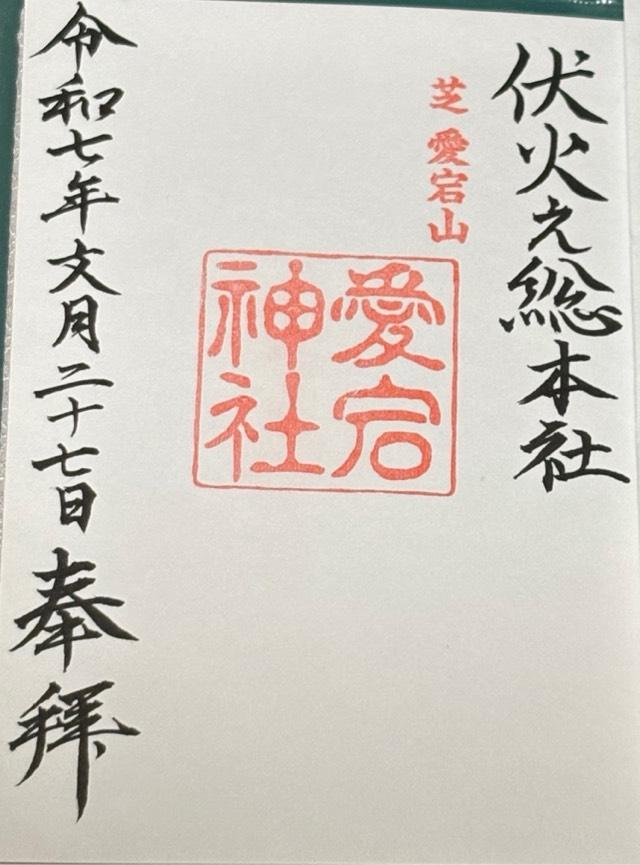 伏火之総本社
芝 愛宕山
愛宕
神社
令和七年文月二十七日 奉拝